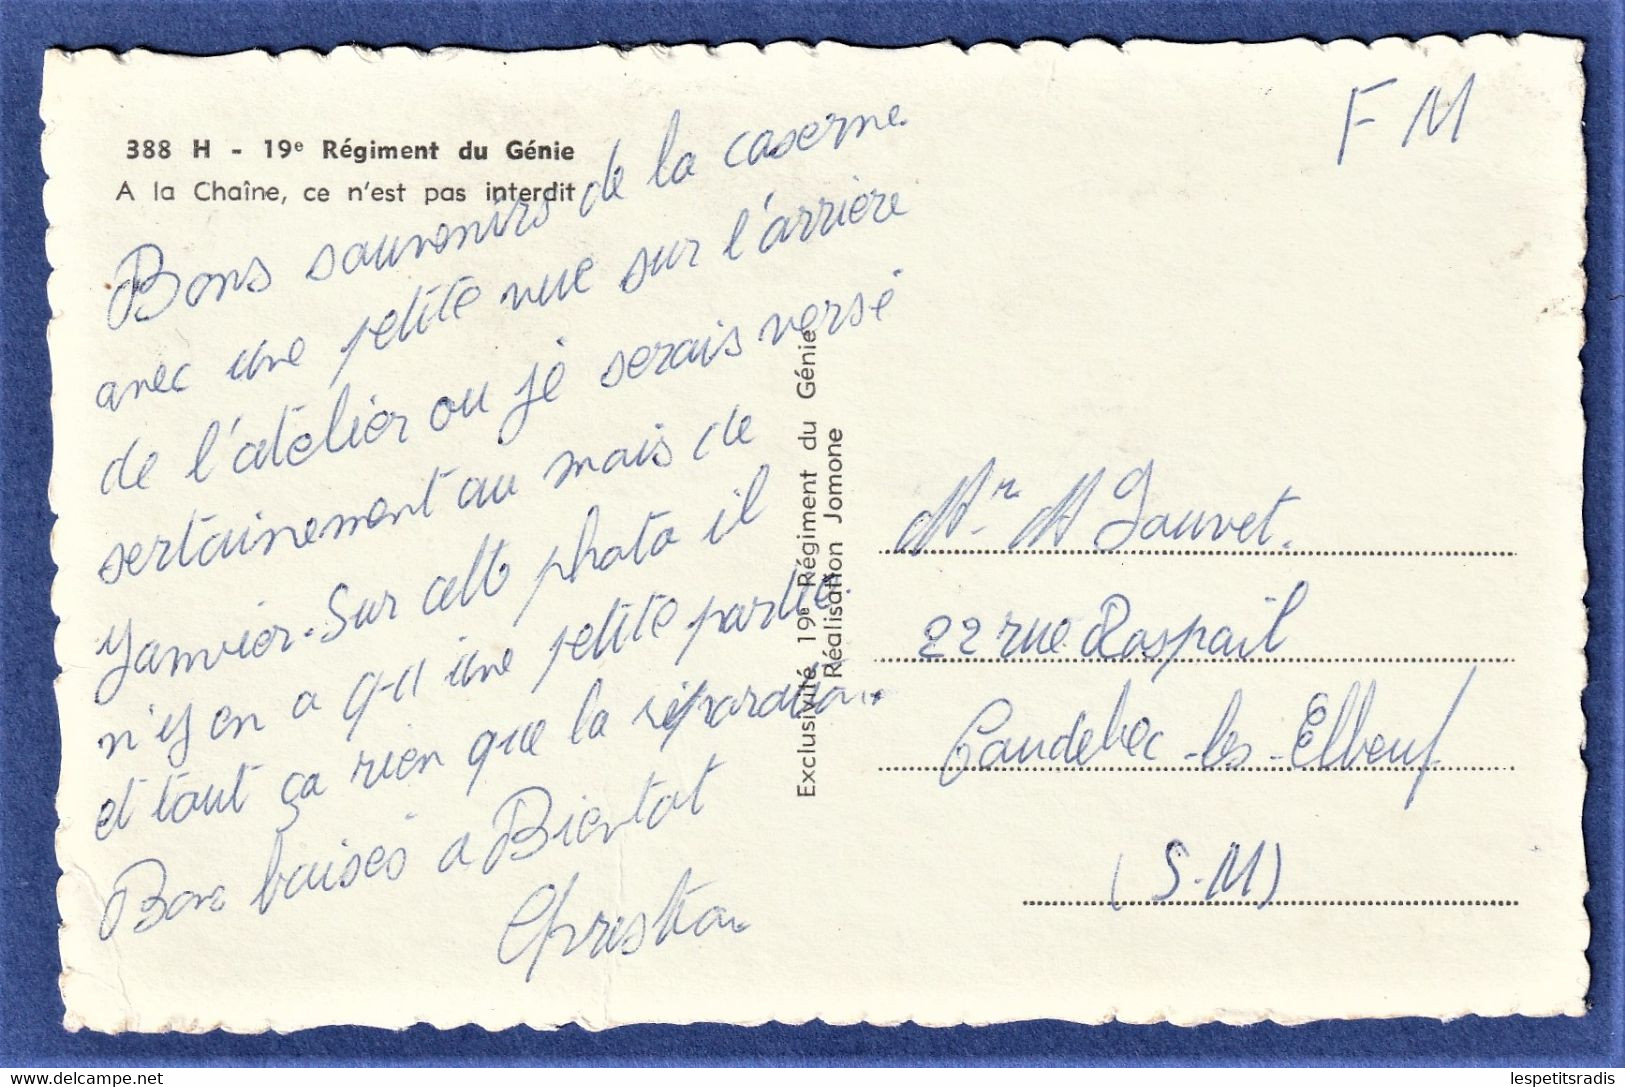 388 H - 19e Régiment du Génie
A la Chaîne, ce n'est pas interdit
Bons souvenirs de la caserne
avec une petite vue sur l'arriére
de l'atelier ou je serais versé
sertainement au mois de
Janvier. Sur cette photo il
n'y en a q-u une petite partie
et tout ça rien que la réparation.
Bon baisés a Bientot
Christian
Exclusivité 19e Régiment du Génie
Réalisation Jomone
F M
Mr M Jouvet.
22 rue Raspail
Caudebec-les-Elbeuf
(S.M)
delcampe.net
lespetitsradis